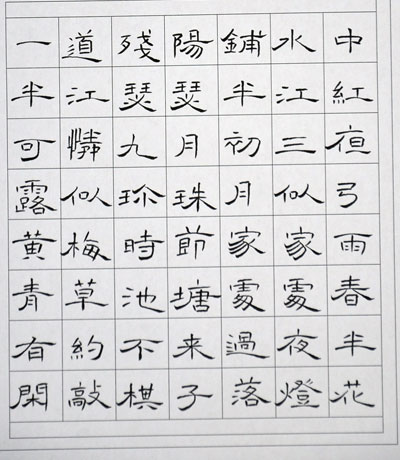 一道殘陽鋪水中
半江瑟瑟半江紅
可憐九月初三夜
露似珍珠月似弓
黄梅時節家家雨
青草池塘處處春
有約不来過夜半
閑敲棋子落燈花